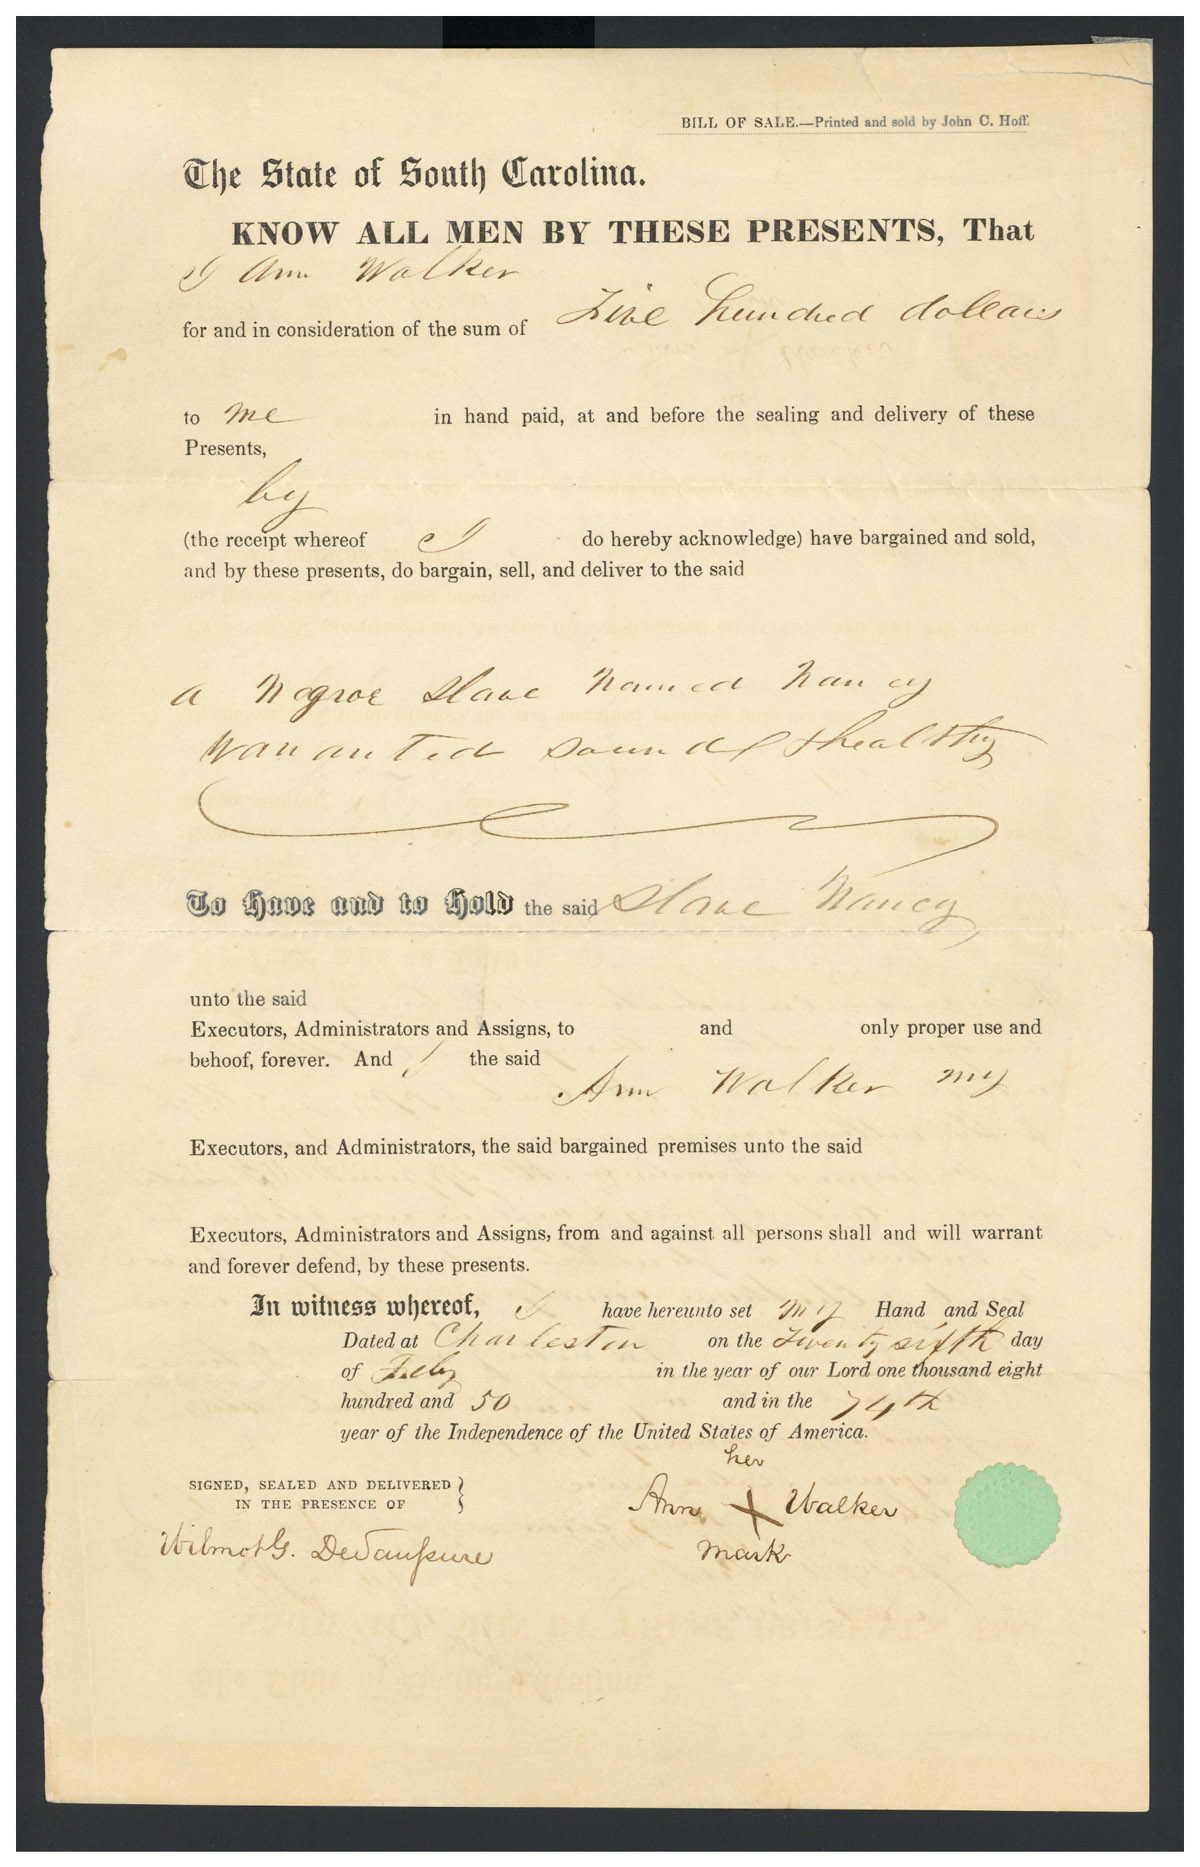 BILL OF SALE.—Printed and sold by John C. Hoff.
The State of South Carolina.
KNOW ALL MEN BY THESE PRESENTS, That
I Ann Walker
for and in consideration of the sum of Five hundred dollars
to me in hand paid, at and before the sealing and delivery of these
Presents,
by
(the receipt whereof I do hereby acknowledge) have bargained and sold,
and by these presents, do bargain, sell, and deliver to the said
a Negroe Slave named Nancy
Warranted sound & healthy
To Have and to Hold the said Slave Nancy,
unto the said
Executors, Administrators and Assigns, to and only proper use and
behoof, forever. And I the said
Ann Walker my
Executors, and Administrators, the said bargained premises unto the said
Executors, Administrators and Assigns, from and against all persons shall and will warrant
and forever defend, by these presents.
In witness whereof, I have hereunto set my Hand and Seal
Dated at Charleston on the Twenty sixth day
of Feby in the year of our Lord one thousand eight
hundred and 50 and in the 74th
year of the Independence of the United States of America.
her
SIGNED, SEALED AND DELIVERED
IN THE PRESENCE OF
Ann X Walker
mark
Wilmot G. DeSaussure